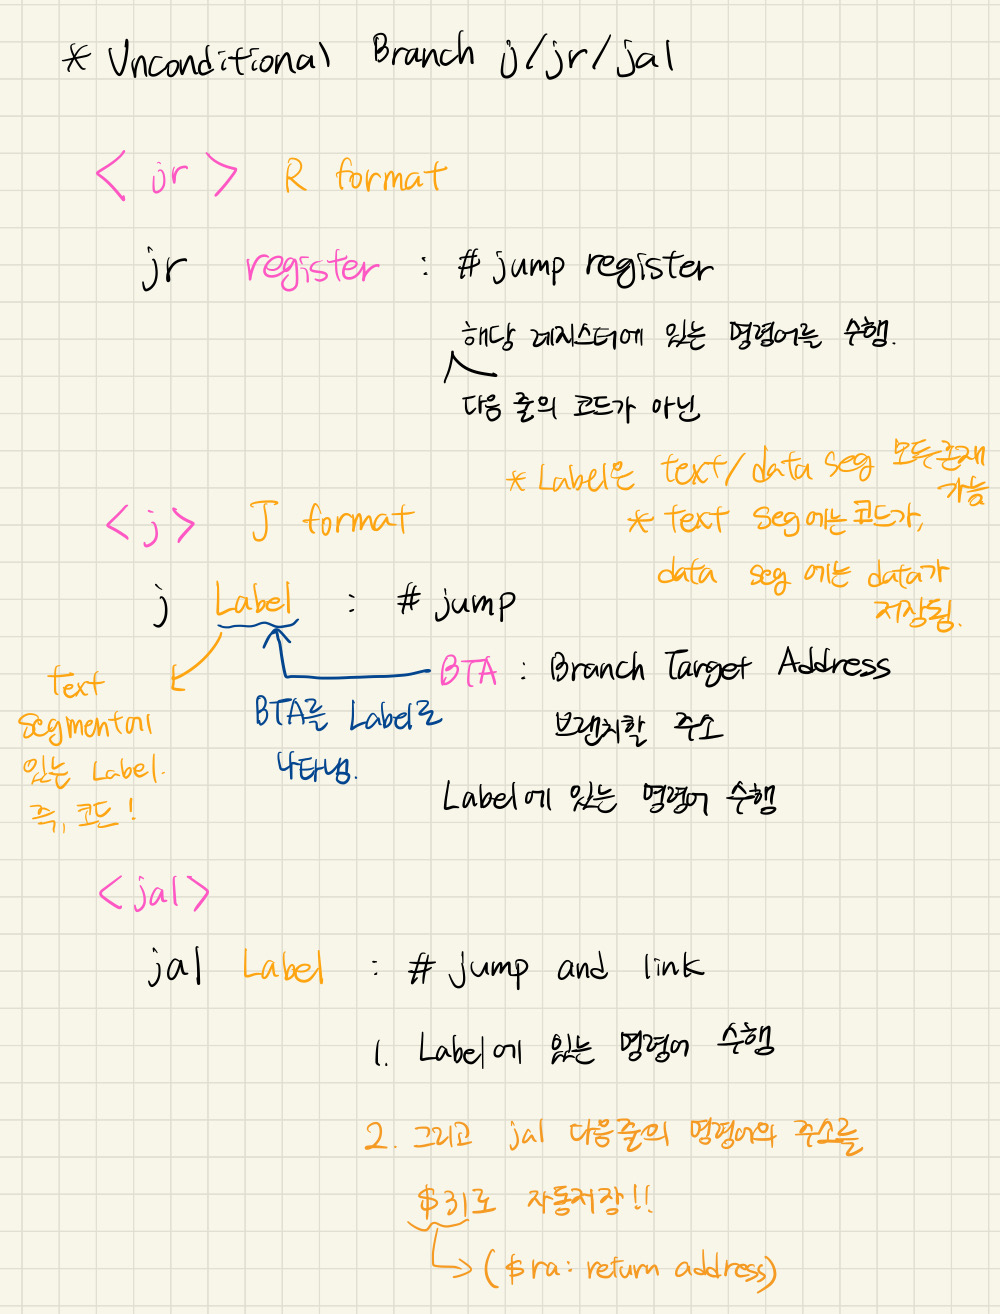 * Unconditional Branch j/jr/jal
<jr> R format
jr register : # jump register
해당 레지스터에 있는 명령어를 수행.
다음 줄의 코드가 아닌
* Label은 text/data seg 모두 존재
가능
* text seg에는 코드가,
data seg에는 data가
저장됨.
<j> J format
j Label : # jump
BTA : Branch Target Address
브랜치할 주소
Label에 있는 명령어 수행
BTA를 Label로
나타냄.
text
segment에
있는 Label.
즉, 코드!
<jal>
jal Label : # jump and link
1. Label에 있는 명령어 수행
2. 그리고 jal 다음줄의 명령어의 주소를
$31로 자동저장!!
($ra: return address)